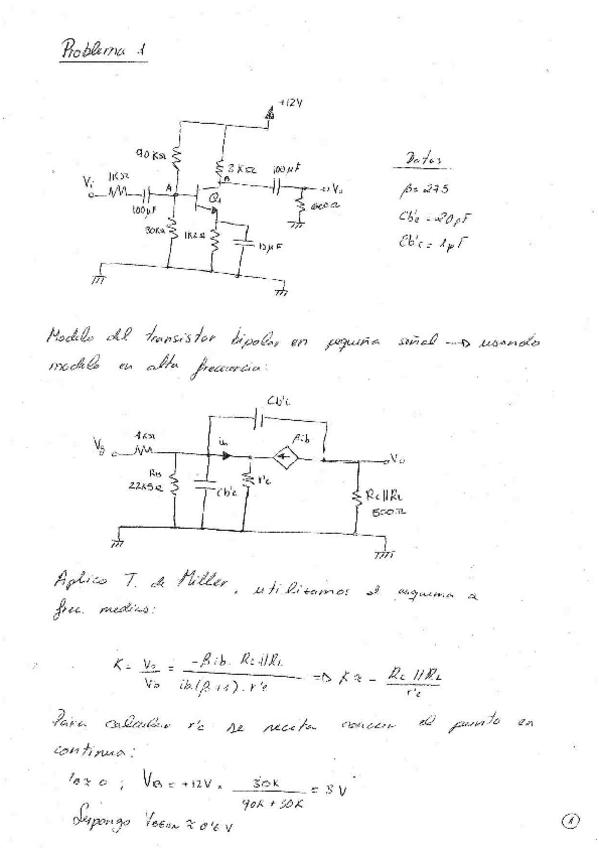 Problema 1
+12V
90KΩ
3KΩ
100µF
Vi
1KΩ
A
B
Q1
Vo
100µF
30KΩ
1K2Ω
Datos
β=275
Cb'e = 20pF
Cb'c = 1pF
Modelo del transistor bipolar en pequeña señal → usando
modelo en alta frecuencia:
Cb'c
1KΩ
ib
βib
Vo
RB
22K5Ω
Cb'e
r'e
Rc||RL
500Ω
Aplico T. de Miller, utilizamos el esquema a
frec. medias:
K = Vo/Vb = -βib·Rc||RL / ib(β+1)·r'e ⇒ K ≈ - Rc||RL / r'e
Para calcular r'e se necesita conocer el punto en
continua:
IB≈0 ; VB = +12V · 30K / 90K+30K = 3V
Supongo VBEON ≈ 0'6V
1